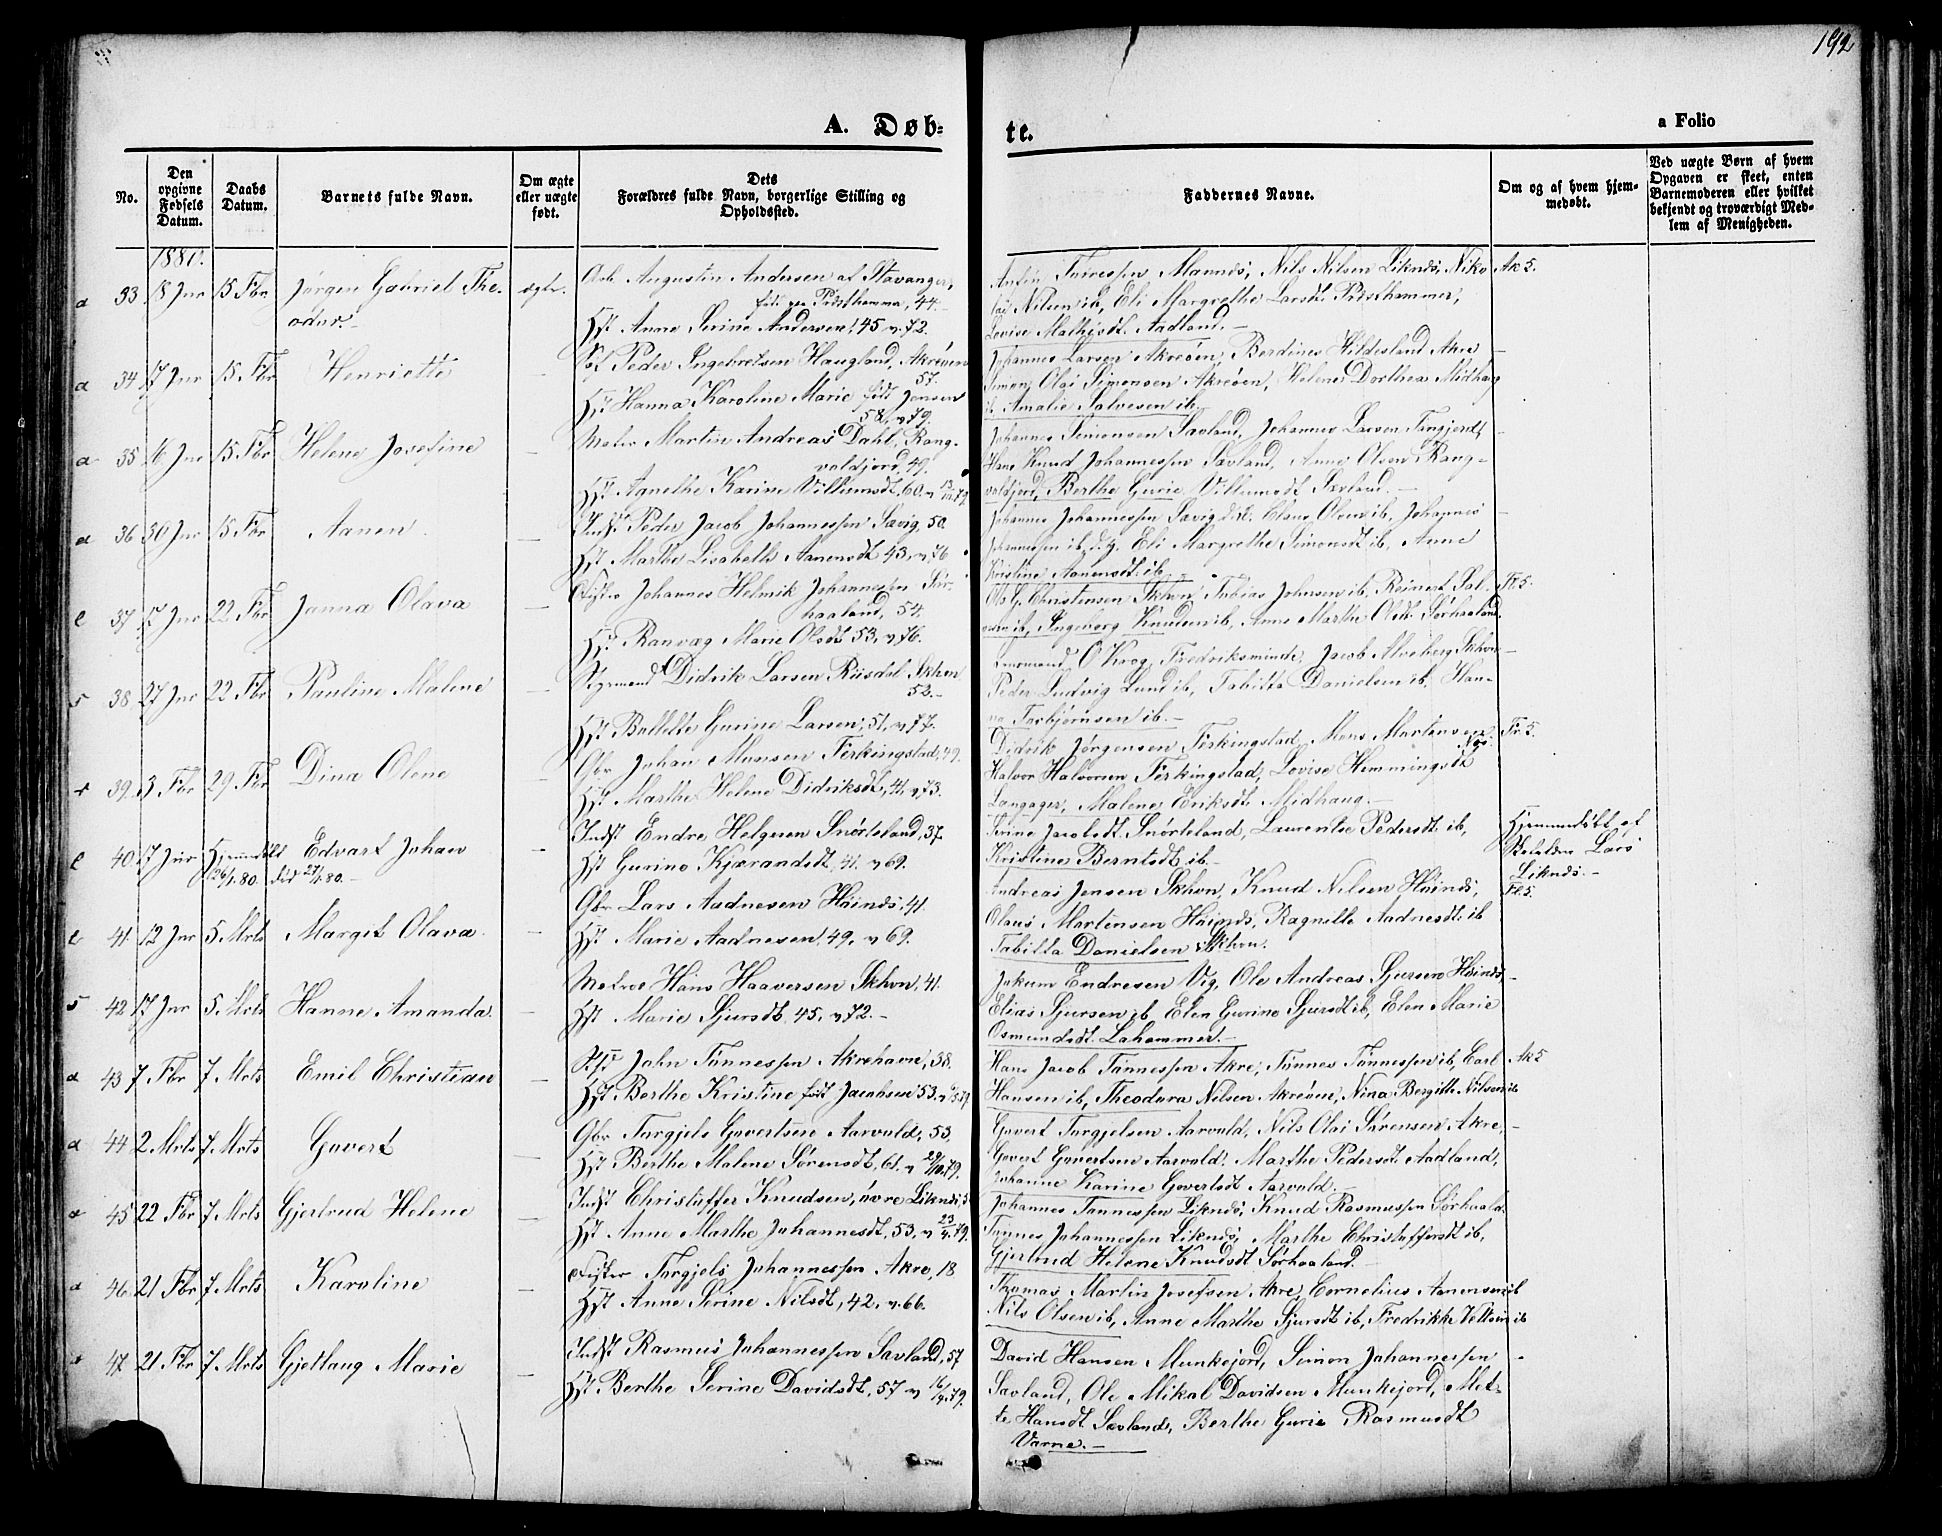 192
A. Døb-
te.
a Folio
No.
Den opgivne Fødsels Datum.
Daabs Datum.
Barnets fulde Navn.
Om ægte eller uægte født.
Dets Forældres fulde Navn, borgerlige Stilling og Opholdssted.
Faddernes Navne.
Om og af hvem hjemmedøbt.
Ved uægte Børn af hvem Opgaven er skeet, enten Barnemoderen eller hvilket bekjendt og troværdigt Medlem af Menigheden.
1880.
a 33 18 Jnr 15 Fbr Jørgen Gabriel The-
odor.
Augustin Andersen af Stavanger,
44.
Hst Anne Serine Andersen, 45 v. 72.
Nils Nilsen Liknes, Niko
lai Nilsen ib, Eli Margrethe Larsdt.
Lovise Mathisdt. Aadland.
a 34 17 Jnr 15 Fbr Henriette
Peder Ingebretsen Haugland, Akrøen
57.
Hst Hanna Karoline Marie født Jensen
58, v 79.
Johannes Larsen Akrøen, Berdines Hildesland Akre
Olai Simonsen Akrøen, Helene Dorthea Midhaug
ib, Amalie Salvesen ib.
a 35 16 Jnr 15 Fbr Helene Josefine
Martin Andreas Dahl, Rang-
valdjord, 49.
Hst Aanethe Karine Villumsdt, 60.
Johannes Simonsen Sævland, Johannes Larsen
Hans Knud Johannessen Sævland, Anne Olsen Rang-
valdjord, Berthe Gurie Villumsdt Sævland.
a 36 30 Jnr 15 Fbr Aanen
Indst Peder Jacob Johannessen Sævig, 50.
Hst Marthe Lisabeth Aanensdt 43, v. 76
Johannes Johannessen Sævig, Claus Olsen ib, Johannes
Johannessen ib, d. y. Eli Margrethe Simonsdt ib, Anne
Kristine Aanensdt ib.
e 37 17 Jnr 22 Fbr Janna Olava
Johannes Helmik Johannessen Sør-
haaland, 54.
Hst Ranvæg Marie Olsdt 53, v 76.
Ole G. Christensen Skhvn, Tobias Johnsen ib, Reinert Sal-
vesen ib, Ingeborg Knudsen ib, Anne Marthe Olsdt. Sørhaaland.
s 38 27 Jnr 22 Fbr Pauline Malene
Didrik Larsen Riisdal Skhvn
52.
Hst Gurine Larsen, 51, v 77.
O Krog Fredriksminde, Jacob Skhvn
Peder Ludvig Lund ib, Tabitta Danielsen ib, Han-
na Torbjørnsen ib.
39. 3 Fbr 29 Fbr Dina Olene
Gbr Johan Monsen Ferkingstad, 49.
Hst Marthe Helene Didriksdt, 41. v 73.
Didrik Jørgensen Ferkingstad, Mons Martensen
Halvor Halvorsen Ferkingstad, Lovise Hemmingsdt
Langager, Malene Eriksdt. Midhaug.
e 40 17 Jnr Hjemmedøbt Edvart Johan
26/1.80. død 27/1 80.
Indst Endre Helgesen Snørteland, 37.
Hst Gurine Kjærandsdt, 41. v 69.
Serine Jacobsdt. Snørteland, Laurentse Pedersdt ib,
Kristine Berntsdt ib.
Hjemmedøbt af
Lars
Liknes.
e 41 12 Jnr 5 Mrts Margit Olava
Gbr Lars Aadnesen Høines, 41.
Hst Marie Aadnesen, 49, v 69.
Andreas Jensen Skhvn, Knud Nilsen Høines,
Olaus Martensen Høines, Ragnille Aadnesdt ib
Tabitta Danielsen Skhvn.
s 42 17 Jnr 5 Mrts Hanne Amanda
Hans Haaversen Skhvn, 41.
Hst Marie Sjursdt, 45, v 72.
Jakum Endresen Vig, Ole Andreas Sjursen Høines,
Elias Sjursen ib, Elen Gurine Sjursdt ib, Elen Marie
Osmundsdt. Lahammer.
a 43 7 Fbr 7 Mrts Emil Christian
John Tønnessen Akrehavn, 38.
Hst Berthe Kristine født Jacobsen 53.
Hans Jacob Tønnessen Akre, Tønnes Tønnessen ib, Carl
Hansen ib, Theodora Nilsen Akrøen, Nina Bergitte Nilsen ib
a 44 2 Mrts 7 Mrts Govert
Gbr Torgjels Govertsen Aarvold, 53,
Hst Berthe Malene Sørensdt, 61.
Govert Torgjelsen Aarvold, Nils Olai Sørensen Akre,
Govert Govertsen Aarvold, Marthe Pedersdt Aadland,
Johanne Karine Govertsdt Aarvold.
a 45 22 Fbr 7 Mrts Gjertrud Helene
Indst Christoffer Knudsen, øvre Liknes
Hst Anne Marthe Johannesdt, 53, v 23/4.79.
Johannes Tønnessen Liknes, Knud Rasmussen Sørhaal.
Tønnes Johannessen Liknes, Marthe Christoffersdt ib,
Gjertrud Helene Knudsdt Sørhaaland.
a 46 21 Fbr 7 Mrts Karoline
Torgjels Johannessen Akre, 18
Hst Anne Serine Nilsdt, 42, v. 66.
Thomas Martin Josefsen Akre, Cornelius Aanensen ib
Nils Olsen ib, Anne Marthe Sjursdt ib, Fredrikke ib
47 21 Fbr 7 Mrts Gjetlaug Marie
Indst Rasmus Johannessen Sævland, 57
Hst Berthe Serine Davidsdt, 57 v 16/4.79.
David Hansen Munkejord, Simon Johannessen
Sævland, Ole Mikal Davidsen Munkejord, Met-
te Hansdt Sævland, Berthe Gurie Rasmusdt
Varne.